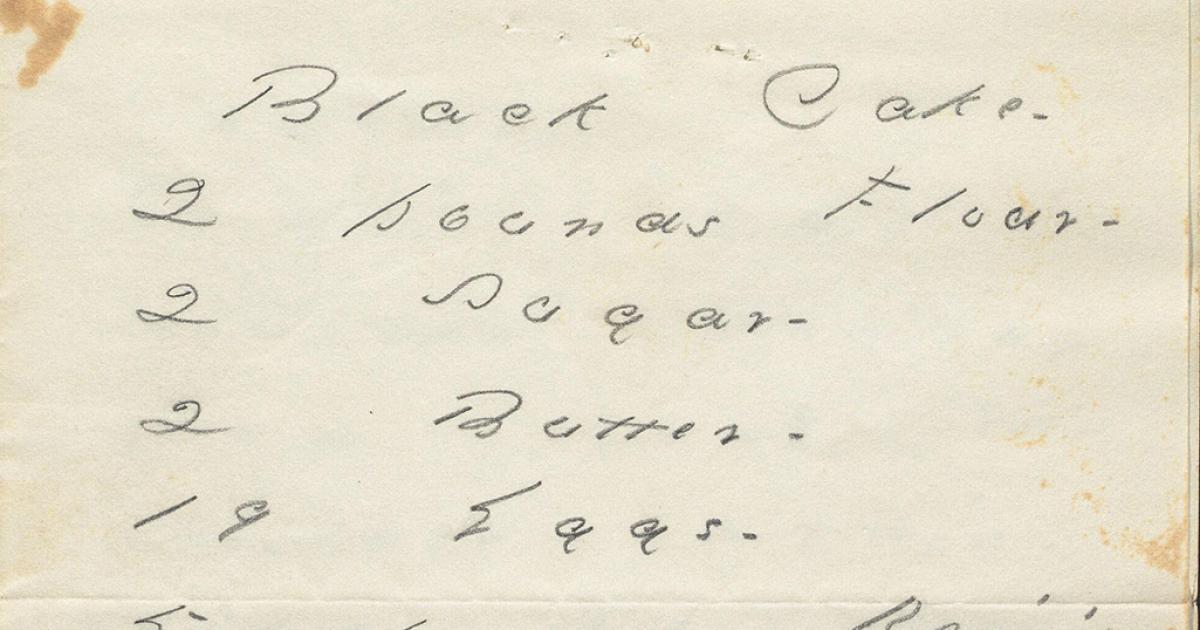 Black Cake-
2 pounds Flour-
2 Sugar-
2 Butter-
19 Eggs-
5